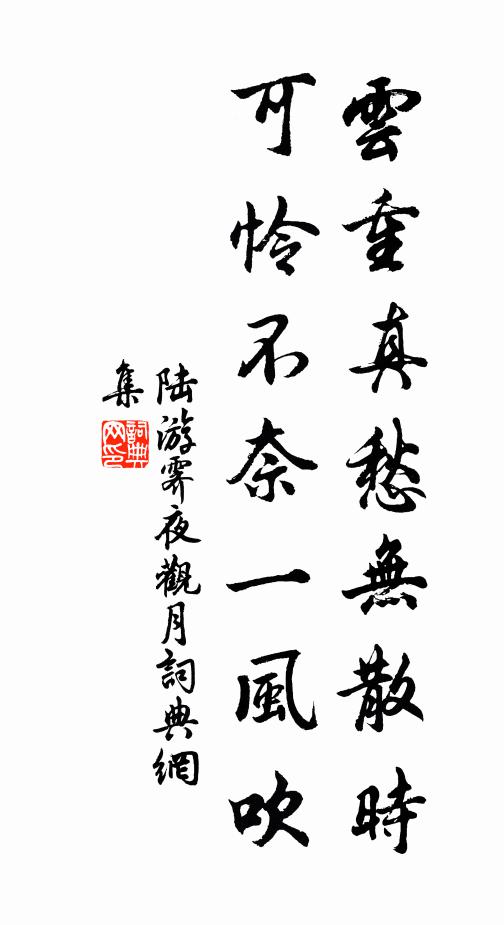 雲重真愁無散時
可憐不奈一風吹
陸游霽夜觀月詞典網
集
詞典
网印